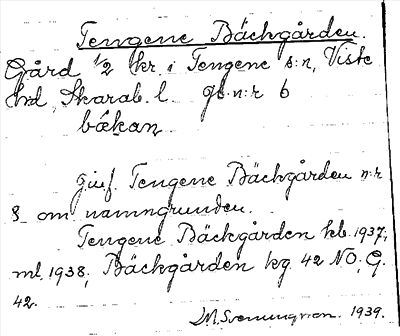 Tengene Bäckgården.
Gård 1/2 kr. i Tengene s:n, Viste
hd, Skarab. l. gb.n:r 6
bä́kan
jmf. Tengene Bäckgården n:r
8 om namngrunden.
Tengene Bäckgården hb. 1937;
ml. 1938; Bäckgården kg. 42 NO; G.
42.
M. Svenungsson. 1939.